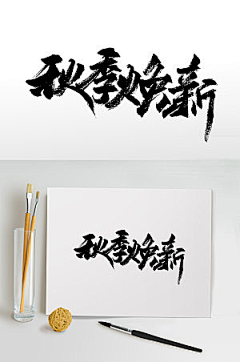 秋季焕新
秋季焕新